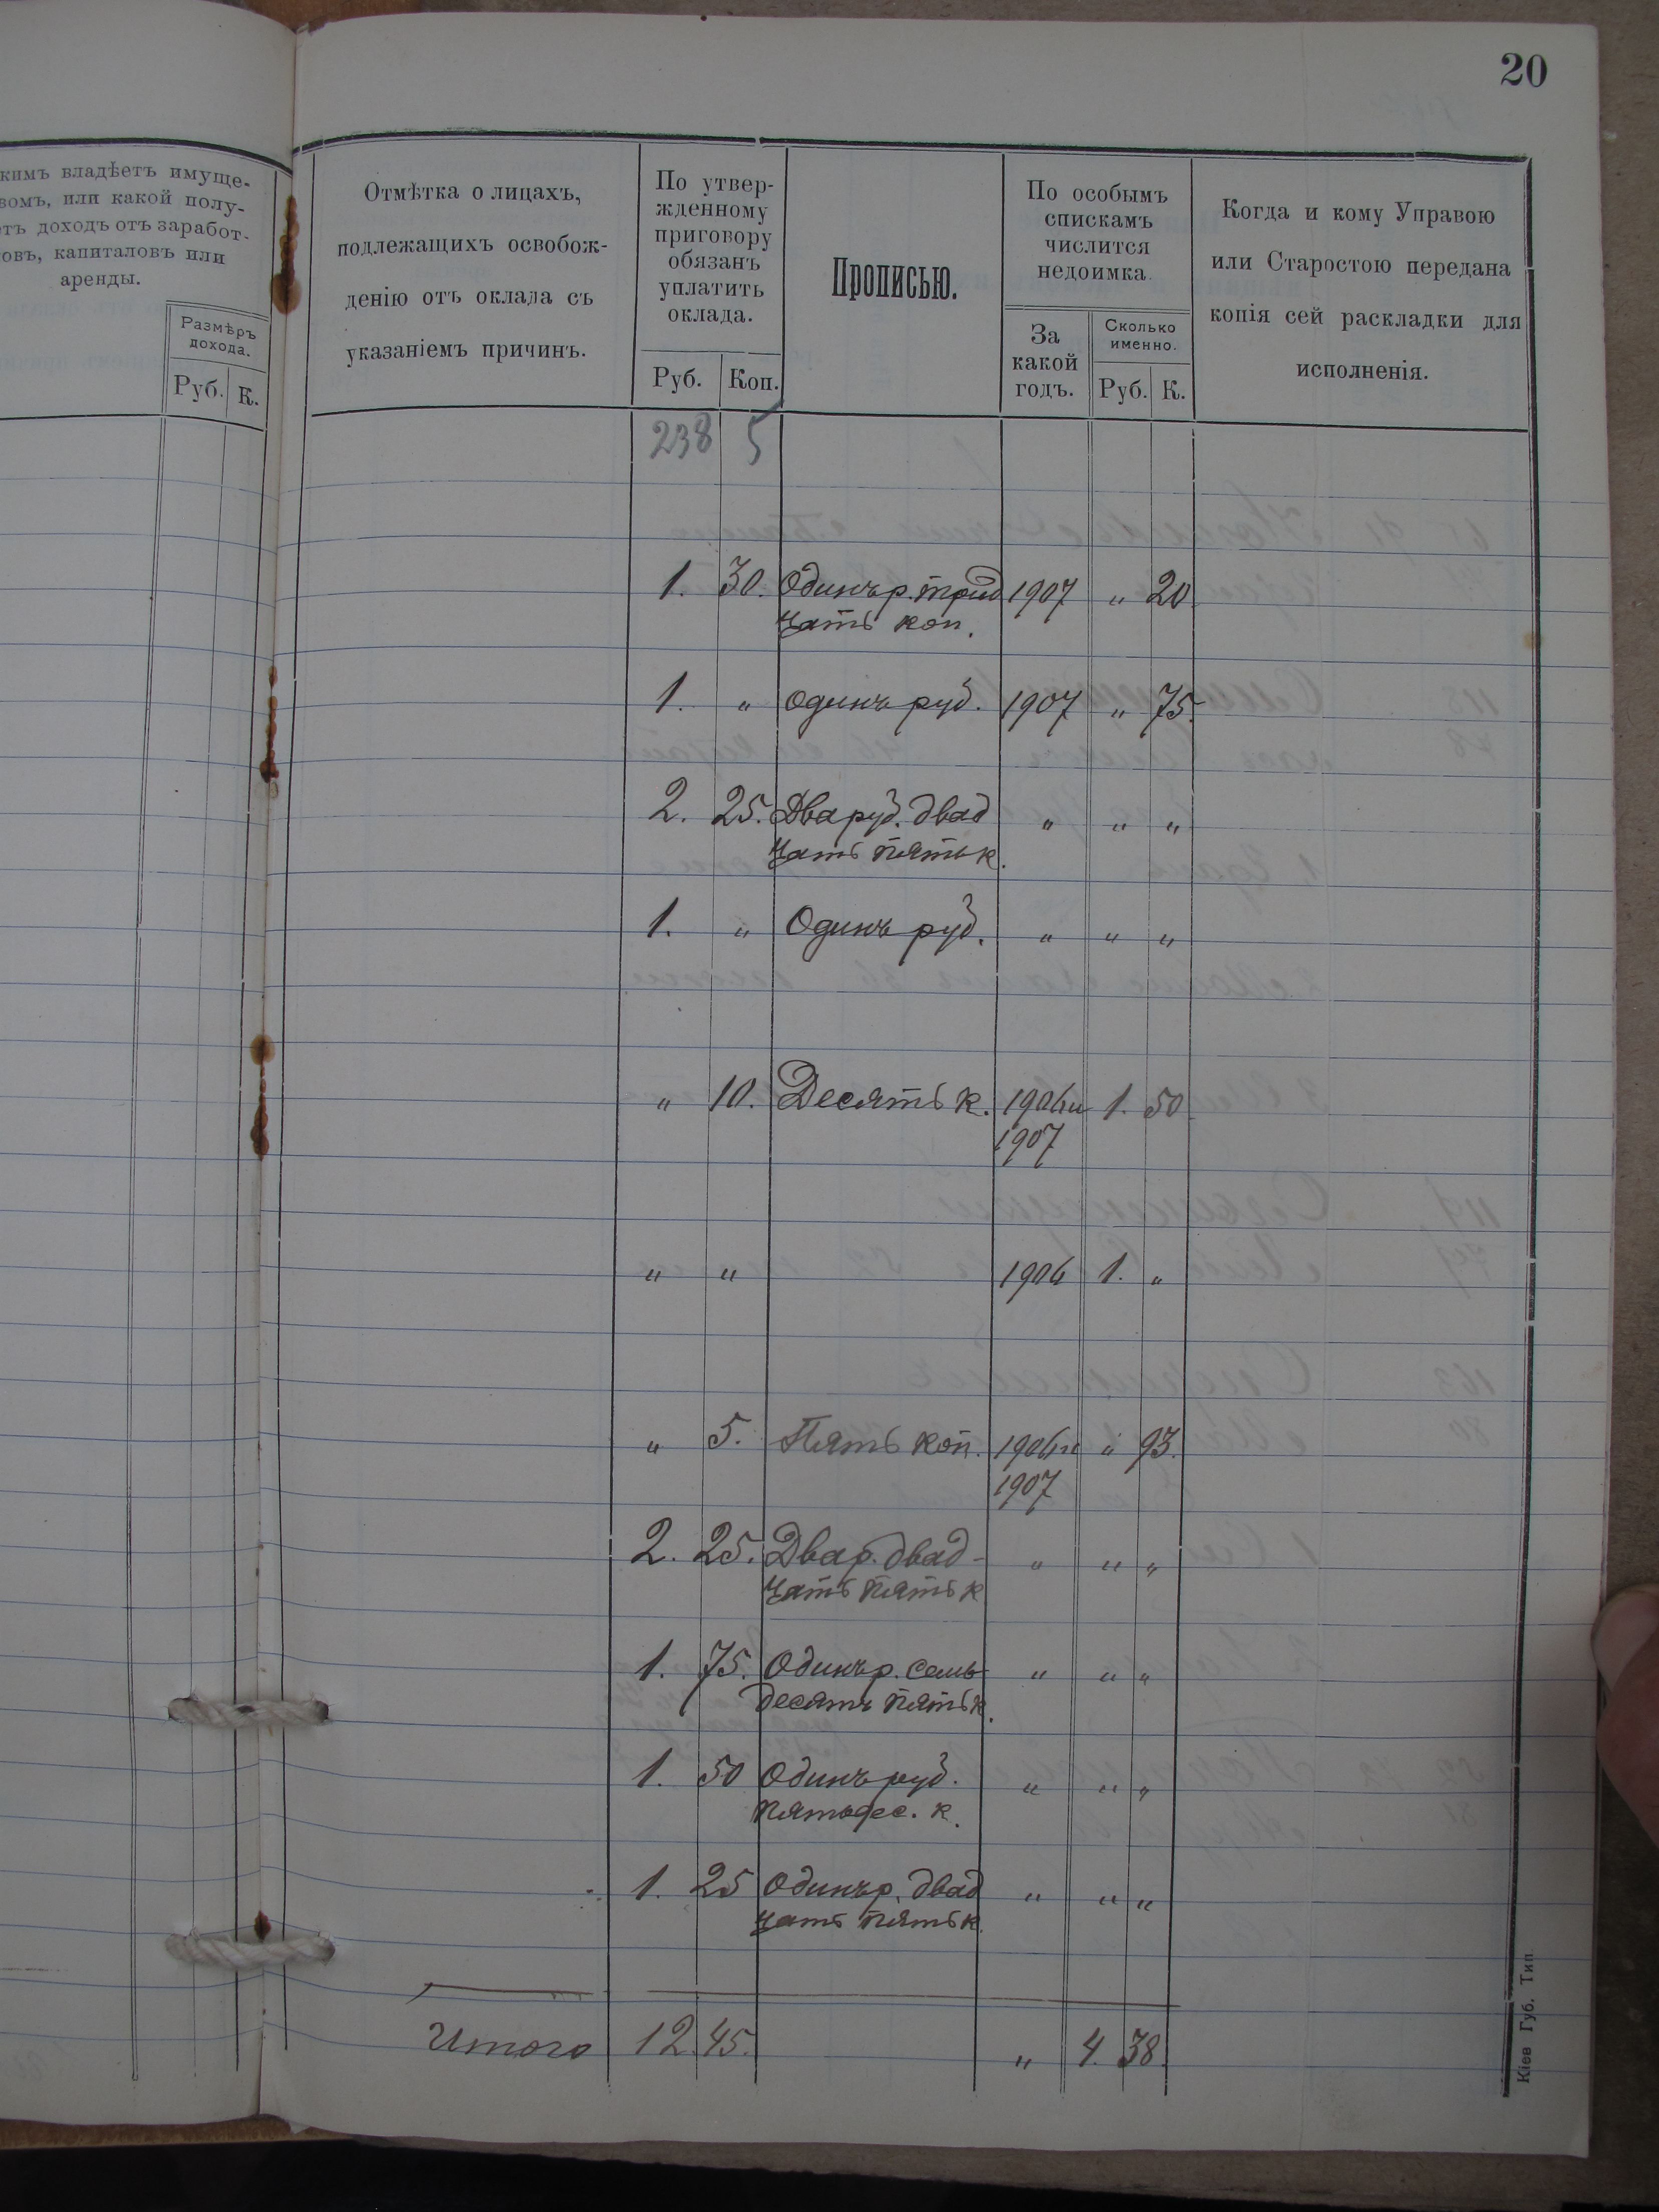 20
кимъ владѣетъ имуще-
вомъ, или какой полу-
етъ доходъ отъ заработ-
овъ, капиталовъ или
аренды.
Размѣръ
дохода.
Руб. К.
Отмѣтка о лицахъ,
подлежащихъ освобож-
денію отъ оклада съ
указаніемъ причинъ.
По утвер-
жденному
приговору
обязанъ
уплатить
оклада.
Руб. Коп.
Прописью.
По особымъ
спискамъ
числится
недоимка.
За
какой
годъ.
Сколько
именно.
Руб. К.
Когда и кому Управою
или Старостою передана
копія сей раскладки для
исполненія.
238 5
1. 30. Одинъ р. трид 1907 " 20
цать коп.
1. " Один руб. 1907 " 75.
2. 25. Два руб. двад " " "
цать пять к.
1. " Одинъ руб. " " "
" 10. Десять к. 1906 и 1. 50.
1907
" " 1906 1. "
" 5. Пять коп. 1906 и " 93.
1907
2. 25. Два р. двад- " " "
цать пять к
1. 75. Одинъ р. семь- " " "
десять пять к.
1. 50 Одинъ руб. " " "
пятьдес. к.
1. 25 Одинъ р. двад " " "
цать пять к.
Итого 12.45. " 4. 38.
Кіев Губ. Тип.